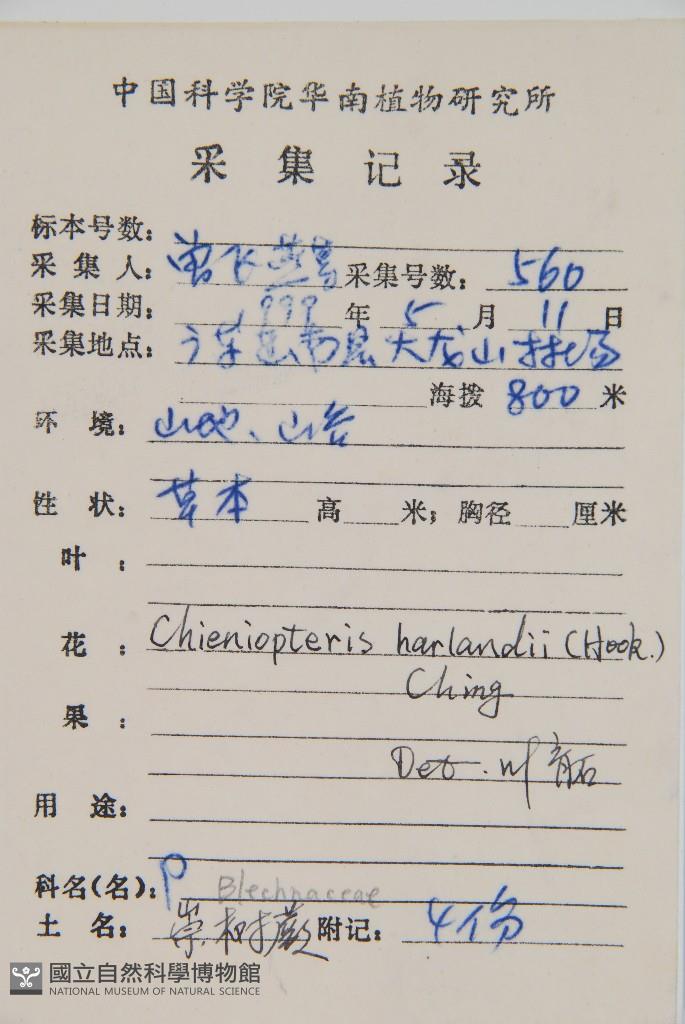 中国科学院华南植物研究所
采集记录
标本号数：
采集人：曾飞燕等 采集号数：560
采集日期：1999年5月11日
采集地点：大龙山林场
海拨 800 米
环境：山地、山谷
性状：草本 高 米；胸径 厘米
叶：
花：Chieniopteris harlandii (Hook.)
Ching
果：
Det. 叶育石
用途：
科名(名)：P Blechnaceae
土名：崇树蕨 附记：4份
國立自然科學博物館
NATIONAL MUSEUM OF NATURAL SCIENCE